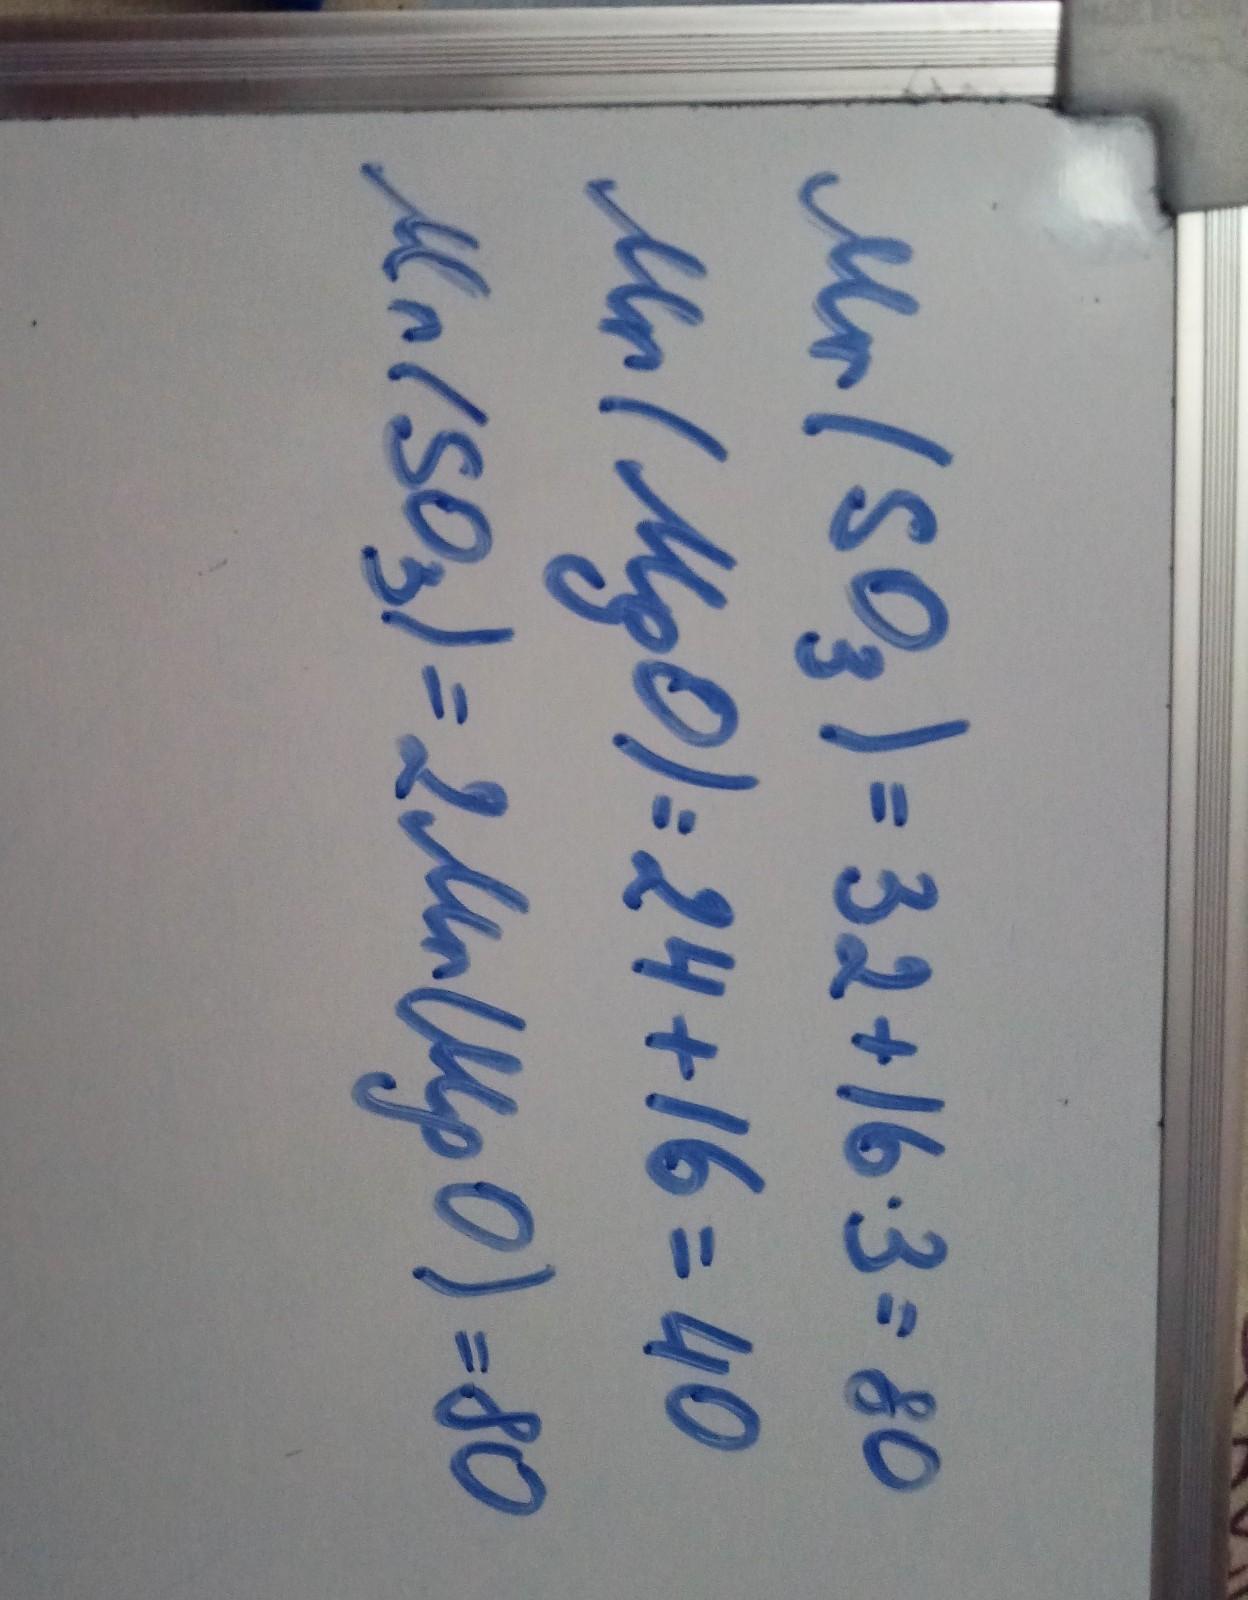 Mr(SO₃) = 32+16·3 = 80
Mr(MgO) = 24+16 = 40
Mr(SO₃) = 2Mr(MgO) = 80